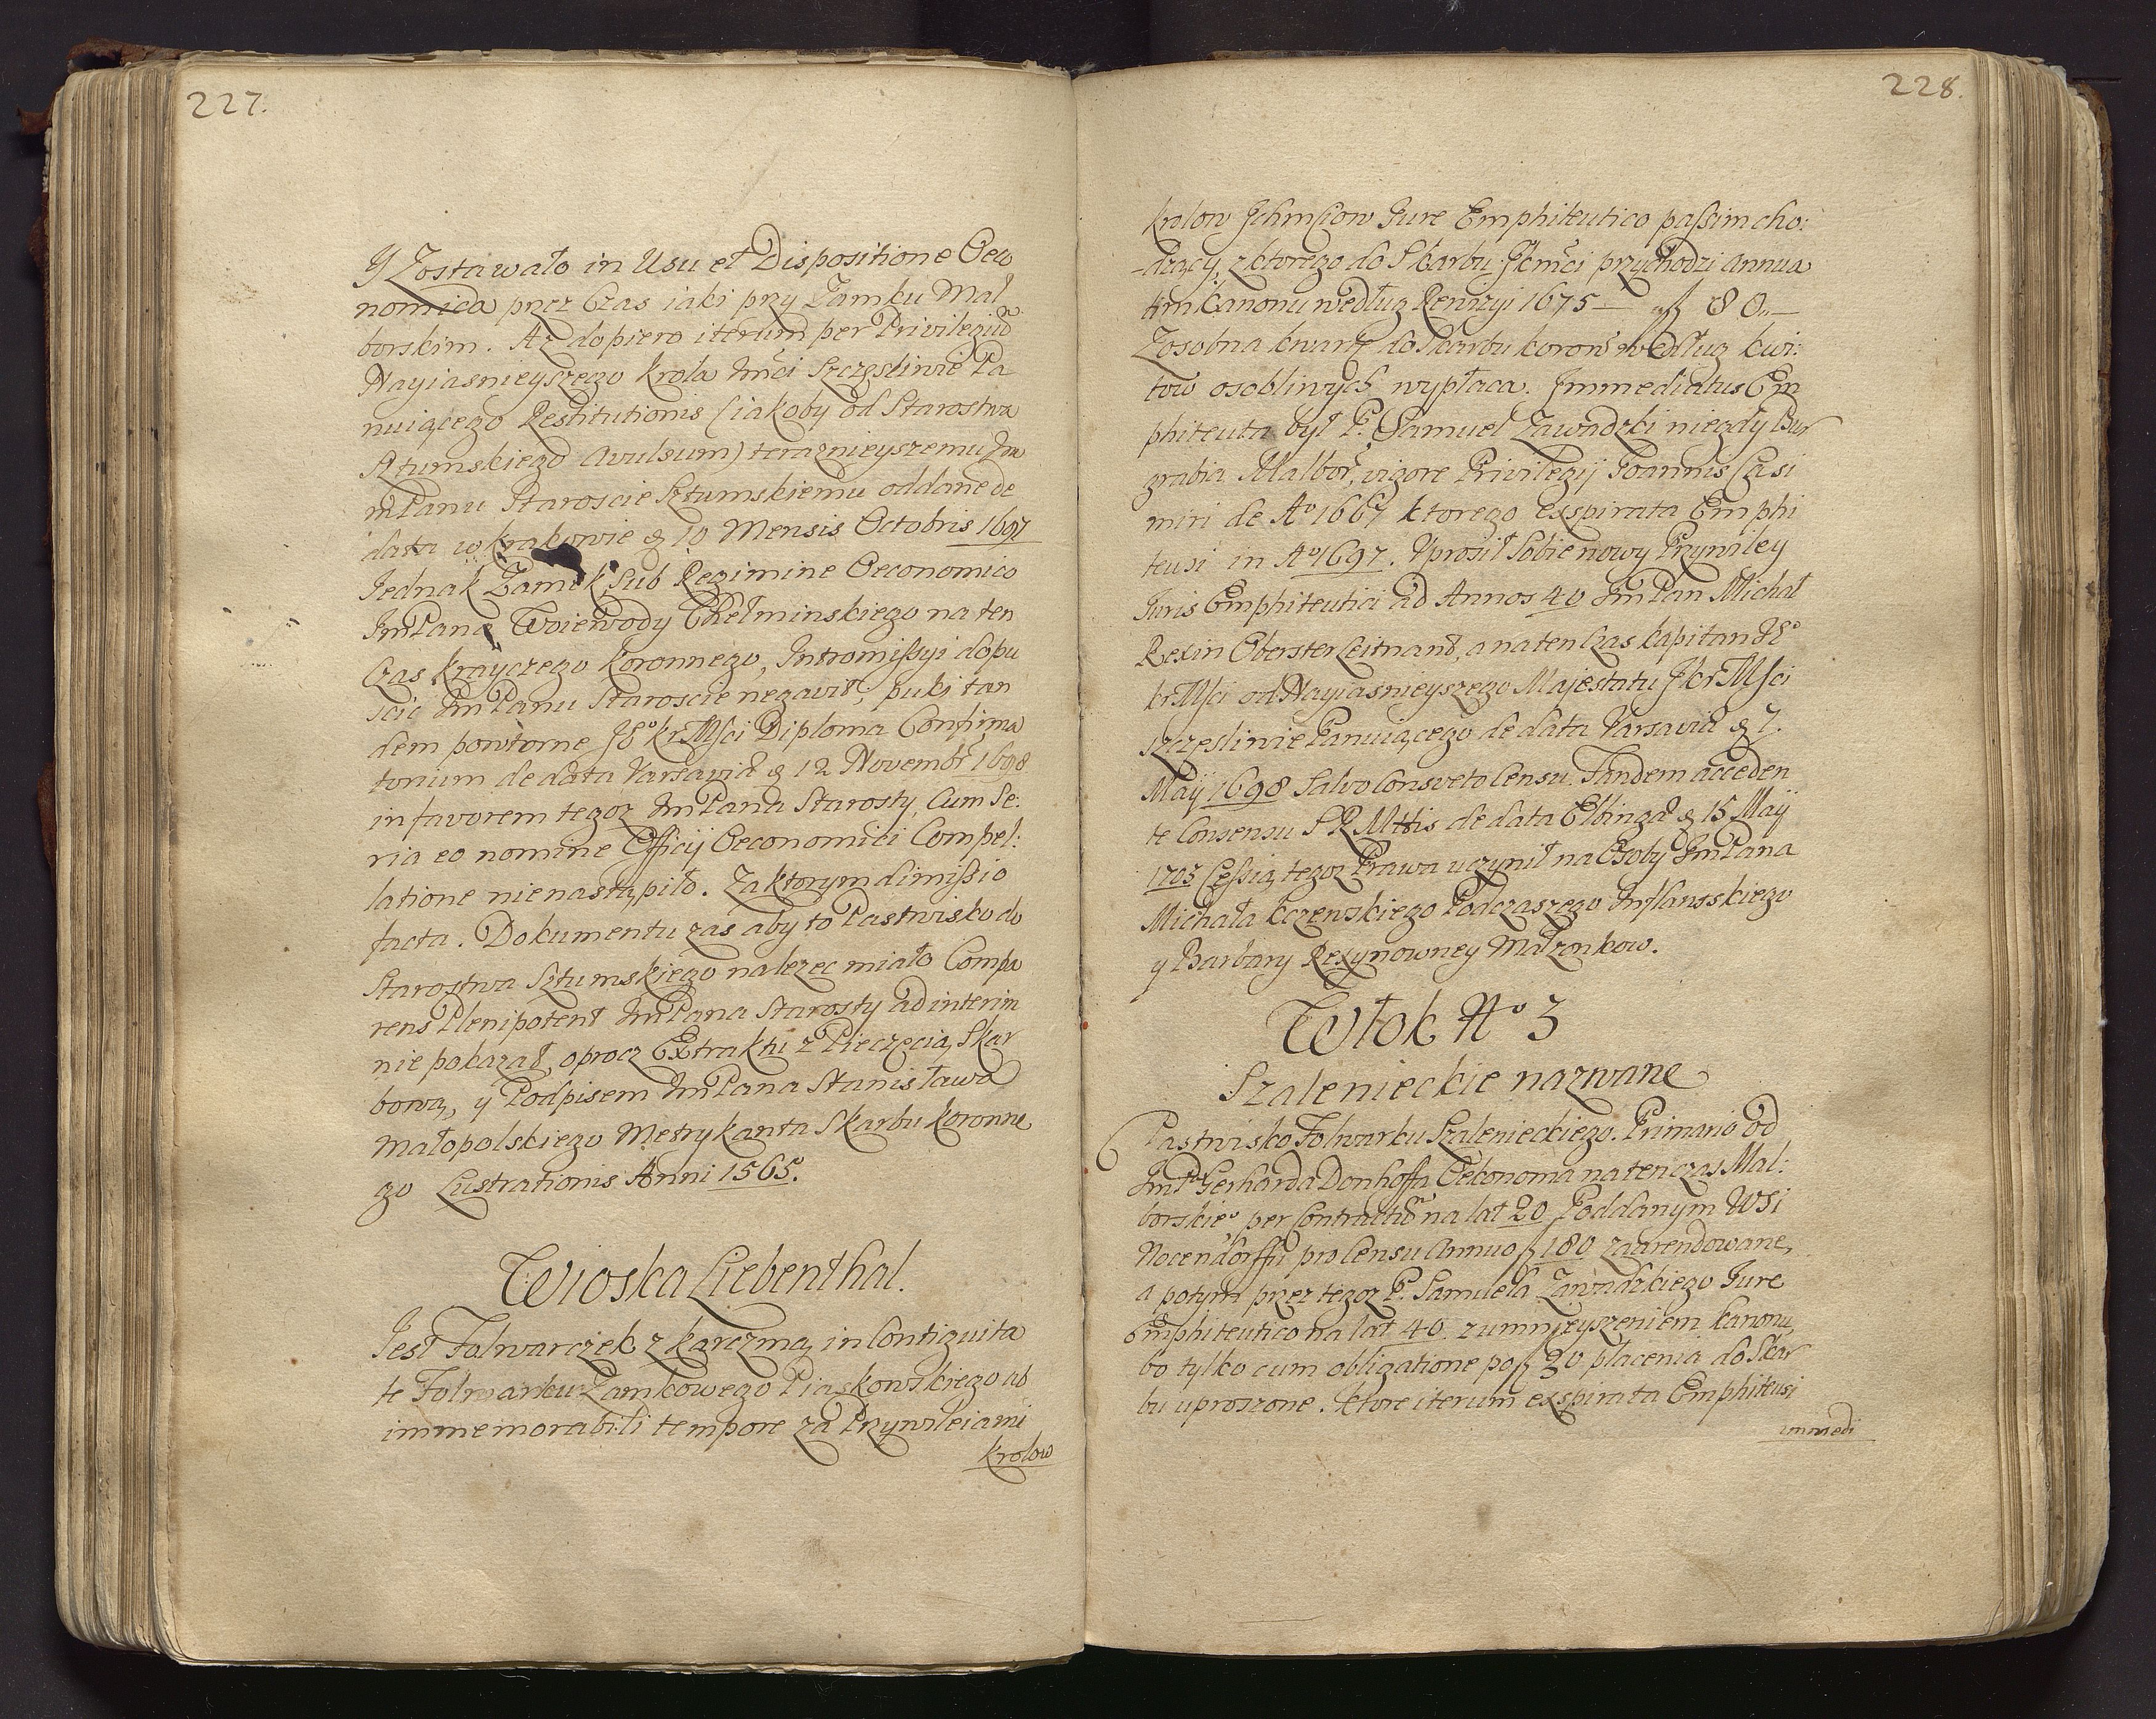 227.
Y Zostawało in Usu et Dispositione Oeco
nomica przez Czas iaki przy Zamku Mal
borskim. Az dopiero iterum per Privilegiū
Nayiasnieyszego Krola Jmści Szczęsliwie Pa
nuiącego Restitutionis (iakoby od Starostwa
Sztumskiego avulsum) teraznieyszemu Jm
Panu Staroscie Sztumskiemu oddane de
data w Krakowie d 10 Mensis Octobris 1697
Jednak Zamek, Sub Regimine Oeconomico
JmPana Woiewody Chełminskiego na ten
Czas Krayczego Koronnego, Intromissyi dopu
scic JmPanu Staroscie negavit, puki tan
dem powtorne Je⁰ Kr Msci Diploma Confirma
torium de data Varsaviæ d 12 Novembr̄ 1698
in favorem tegoz JmPana Starosty, Cum Se:
ria eo nomine Officij Oeconomici Compel:
latione nienastąpiło. Zaktorym dimissio
facta. Dokumentu zas aby to Pastwisko do
Starostwa Sztumskiego nalezec miało Compa
rens Plenipotent JmPana Starosty ad interim
nie pokazał, oprocz Extraktu z Pieczęcią Skar
bową, y Podpisem JmPana Stanisława
Małopolskiego Metrykanta Skarbu Koronne
go Lustrationis Anni 1565.
Wioska Liebenthal.
Jest Folwarczek z karczmą in Contiguita
te Folwarku Zamkowego Piaskowskiego ab
immemorabili tempore za Przywileiami
Krolow
228.
Krolow Ichmściow Jure Emphiteutico passim cho:
dzący, z ktorego do Skarbu JKmści przychodzi annua
tim Kanonu według Rewizyi 1675 — fl 80 „ —
Zosobna kwartę do Skarbu Koron̄ według kwi:
tow osobliwych wypłaca. Immediatus Em
phiteuta był P. Samuel Zawadzki niegdy Bur
grabia Malbor̄, vigore Privilegij Joannis Casi
miri de A⁰ 1667 ktorego exspirata Emphi
teusi in A⁰ 1697. Uprosił Sobie nowy Przywiley
Juris Emphiteutici ad Annos 40 JmPan Michał
Rexin Oberster Leitnand, a naten Czas Kapitan Je⁰
Kr Msci od Nayiasnieyszego Majestatu J Kr Msci
szczęsliwie Panuiącego de data Varsaviæ d 7.
Maij 1698 Salvo Consveto Censu. Tandem acceden
te Consensu S R Mttis de data Elbingæ d 15 Maij
1703 Cessią tegoz Prawa uczynił na Osoby JmPana
Michała Kczewskiego Podczaszego Inflantskiego
y Barbary Rexynowney Małzonkow.
Włok N⁰ 3
Szalenieckie nazwane
Pastwisko Folwarku Szalenieckiego. Primario od
Jm P. Gerharda Donhoffa Oekonoma natenczas Mal:
borskie⁰ per Contractū na lat 20 Poddanym Wsi
Nocendorffu pro Censu Annuo fl 180 zaarendowane,
a potym przez tegoz P. Samuela Zawadzkiego Jure
Emphiteutico na lat 40. z umnieyszeniem Kanonu,
bo tylko cum obligatione po fl 20 płacenia do Skar
bu uproszone. Ktore iterum exspirata Emphiteusi
immedi